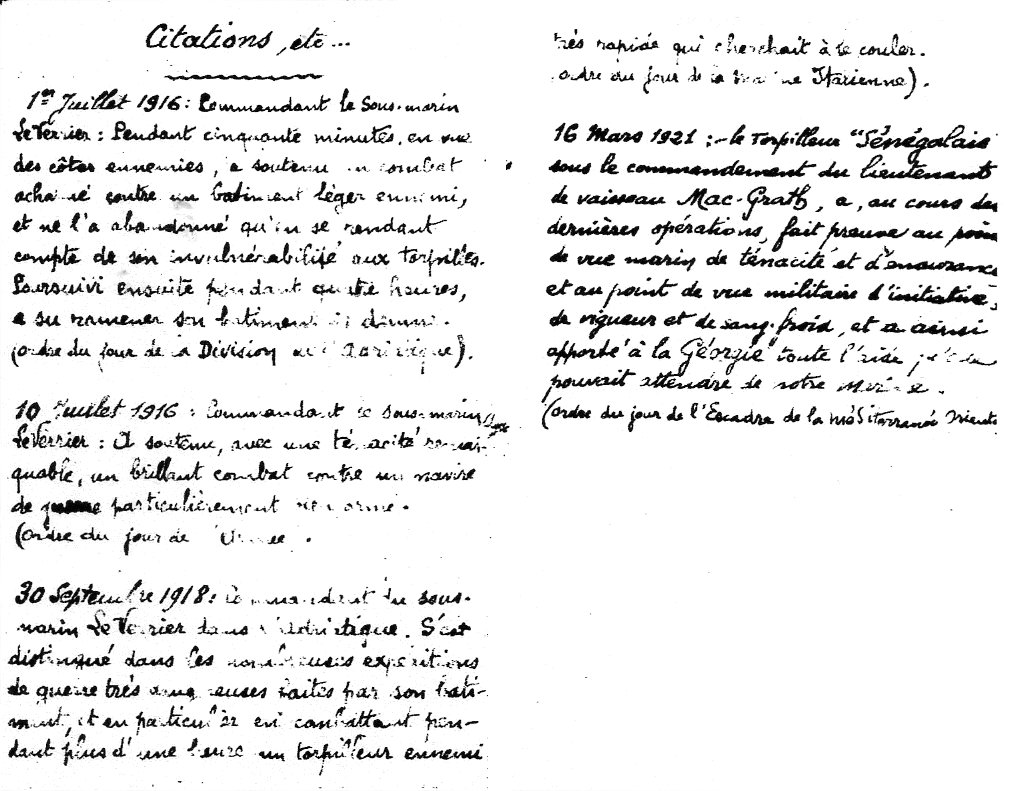 Citations, etc...
1er Juillet 1916 : Commandant le Sous-marin
Le Verrier : Pendant cinquante minutes, en vue
des côtes ennemies, a soutenu un combat
acharné contre un batiment léger ennemi,
et ne l'a abandonné qu'en se rendant
compte de son invulnérabilité aux torpilles.
Poursuivi ensuite pendant quatre heures,
a su ramener son batiment
(ordre du jour de la Division de l'Adriatique).
10 Juillet 1916 : Commandant le sous-marin
Le Verrier : A soutenu, avec une ténacité remar-
quable, un brillant combat contre un navire
de guerre particulièrement bien armé.
(ordre du jour de l'Armée.
30 Septembre 1918 : Commandant du sous-
marin Le Verrier dans l'Adriatique. S'est
distingué dans les nombreuses expéditions
de guerre très dangereuses faites par son bati-
ment, et en particulier en combattant pen-
dant plus d'une heure un torpilleur ennemi
très rapide qui cherchait à le couler.
(ordre du jour de la Marine Italienne).
16 Mars 1921 : - le Torpilleur "Sénégalais
sous le commandement du lieutenant
de vaisseau Mac-Grath, a, au cours des
dernières opérations, fait preuve au point
de vue marin de ténacité et d'endurance
et au point de vue militaire d'initiative,
de vigueur et de sang-froid, et a ainsi
apporté à la Géorgie toute l'aide qu'elle
pouvait attendre de notre marine.
(ordre du jour de l'Escadre de la Méditerranée Orientale